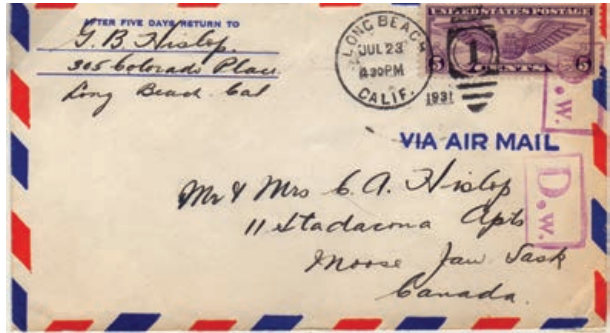 AFTER FIVE DAYS RETURN TO
G. B. Hislop.
305 Colorado Place
Long Beach. Cal
LONG BEACH
JUL 23
4 30 PM
CALIF.
1931
1
UNITED STATES POSTAGE
5 CENTS 5
VIA AIR MAIL
D.W.
D.W.
Mr & Mrs C. A. Hislop
11 Stadacona Apts
Moose Jaw Sask
Canada.